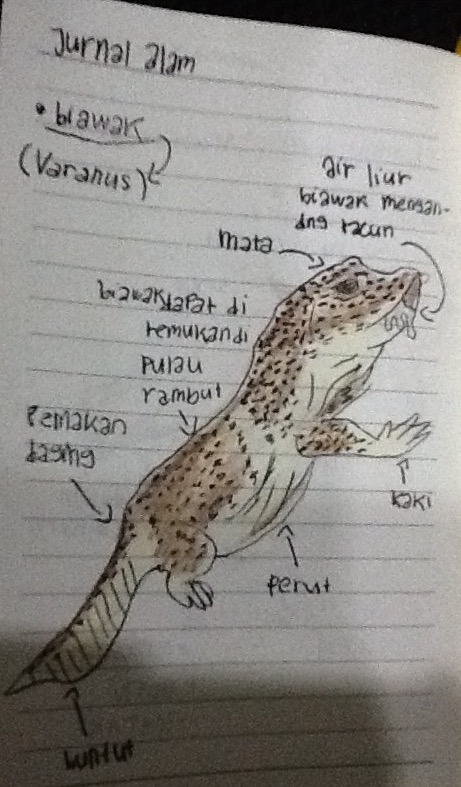 Jurnal alam
• biawak
(Varanus)
air liur
biawak mengan-
dng racun
mata
biawak dapat di
temukan di
pulau
rambut
Pemakan
daging
kaki
perut
buntut